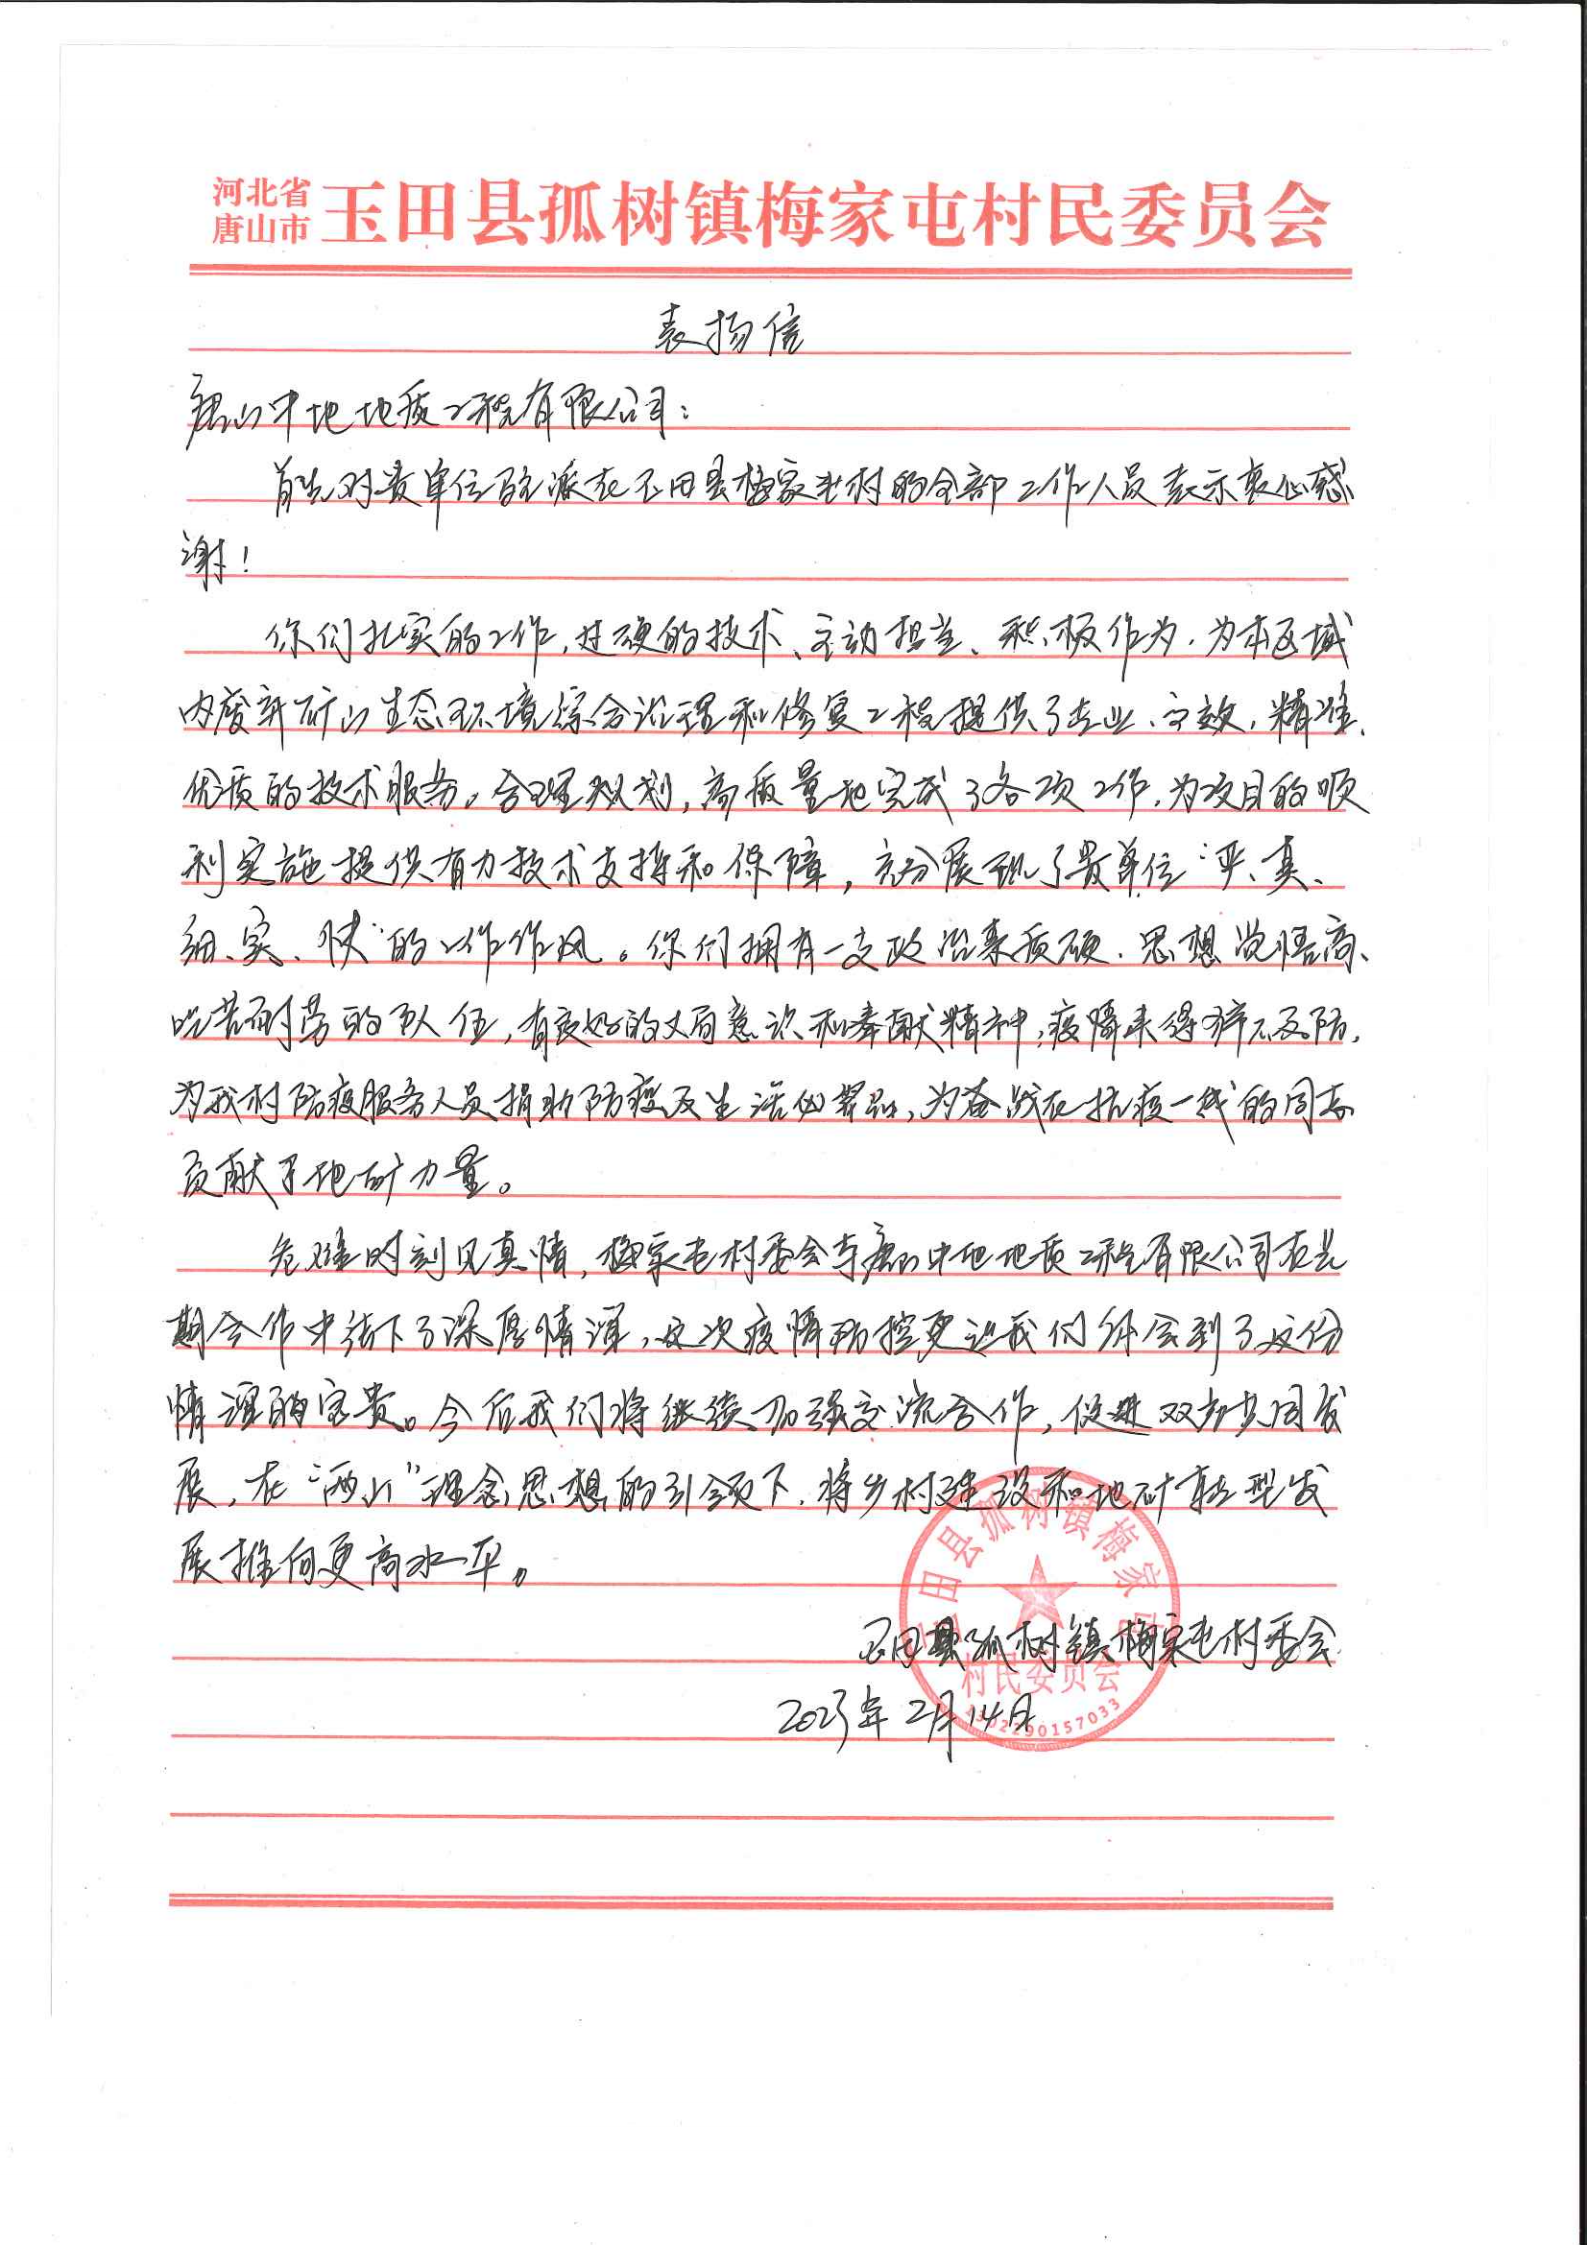 河北省
唐山市
玉田县孤树镇梅家屯村民委员会
表扬信
唐山中地地质工程有限公司：
首先对贵单位驻派在玉田县梅家屯村的全部工作人员表示衷心感
谢！
你们扎实的工作，过硬的技术、主动担当、积极作为，为本区域
内废弃矿山生态环境综合治理和修复工程提供了专业、高效、精准、
优质的技术服务。合理规划，高质量地完成了各项工作，为项目的顺
利实施提供有力技术支持和保障，充分展现了贵单位“严、真、
细、实、快”的工作作风。你们拥有一支政治素质硬、思想觉悟高、
吃苦耐劳的队伍，有良好的大局意识和奉献精神，疫情来得猝不及防，
为我村防疫服务人员捐助防疫及生活必需品，为奋战在抗疫一线的同志
贡献了地矿力量。
危难时刻见真情，梅家屯村委会与唐山中地地质工程有限公司在长
期合作中结下了深厚情谊，这次疫情防控更让我们体会到了这份
情谊的宝贵。今后我们将继续加强交流合作，促进双方共同发
展，在“两山”理念思想的引领下，将乡村建设和地矿转型发
展推向更高水平。
玉田县孤树镇梅家屯村委会
2023年2月14日
玉田县孤树镇梅家屯
村民委员会
1302290157033